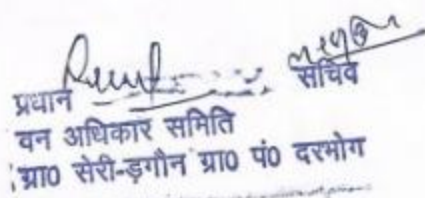 प्रधान सचिव
वन अधिकार समिति
ग्रा0 सेरी-ड़गौन ग्रा0 पं0 दरमोग